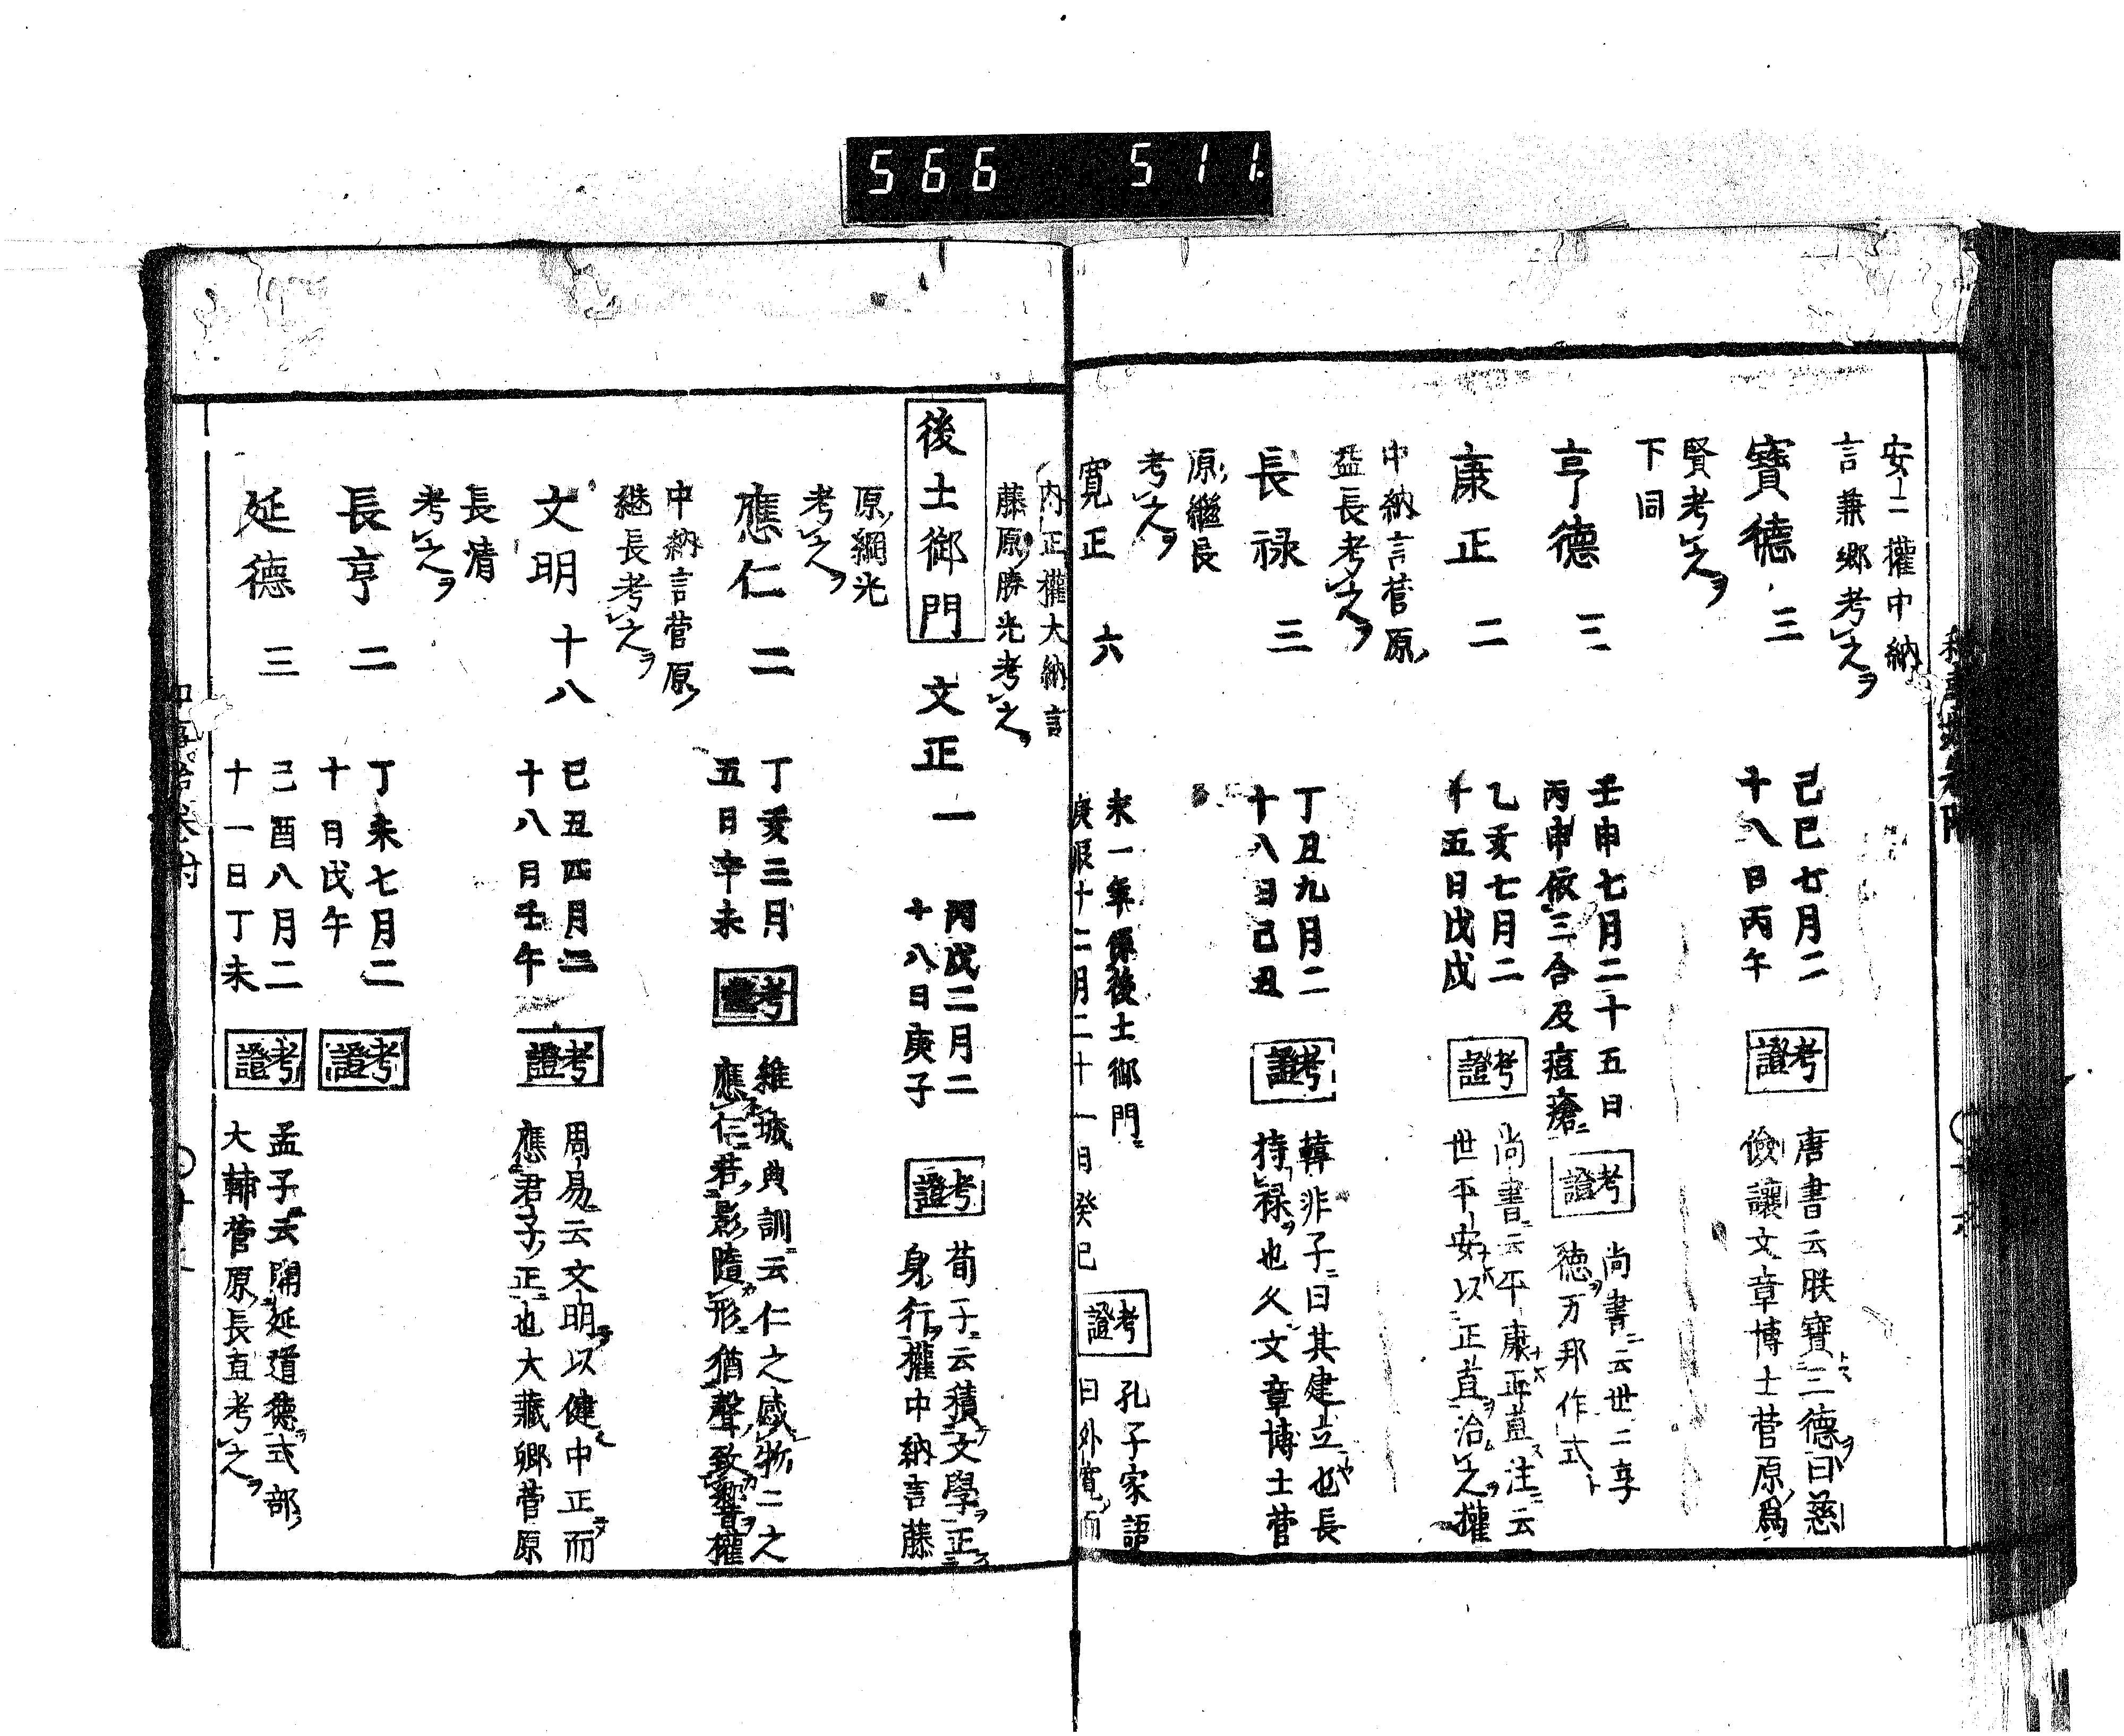 566 511.
安ニ權中納
言兼郷考之ヲ
寶德三
己巳七月二
十八日丙午
考證
唐書云朕寶三德曰慈
儉讓文章博士菅原爲
賢考之ヲ
下同
亨德三
壬申七月二十五日
丙申依三合及痘瘡
考證
尚書云世二享
德万邦作式
康正二
乙亥七月二
十五日戊戌
考證
尚書云平康正直注云
世平安以正直治之權
中納言菅原
益長考之ヲ
長禄三
丁丑九月二
十八日己丑
考證
韓非子曰其建立也長
持禄也久文章博士菅
原繼長
考之ヲ
寛正六
末一年係後土御門
庚辰十二月二十一日癸巳
考證
孔子家語
曰外寛而
内正權大納言
藤原勝光考之
後土御門
文正一
丙戌二月二
十八日庚子
考證
荀子云積文學正
身行權中納言藤
原綱光
考之ヲ
應仁二
丁亥三月
五日辛未
考證
維城典訓云仁之感物二之
應仁若影隨形猶聲致響權
中納言菅原
継長考之ヲ
文明十八
己丑四月二
十八日壬午
考證
周易云文明以健中正而
應君子正也大藏卿菅原
長清
考之ヲ
長亨二
丁未七月二
十日戊午
考證
延德三
己酉八月二
十一日丁未
考證
孟子云開延道德式部
大輔菅原長直考之ヲ